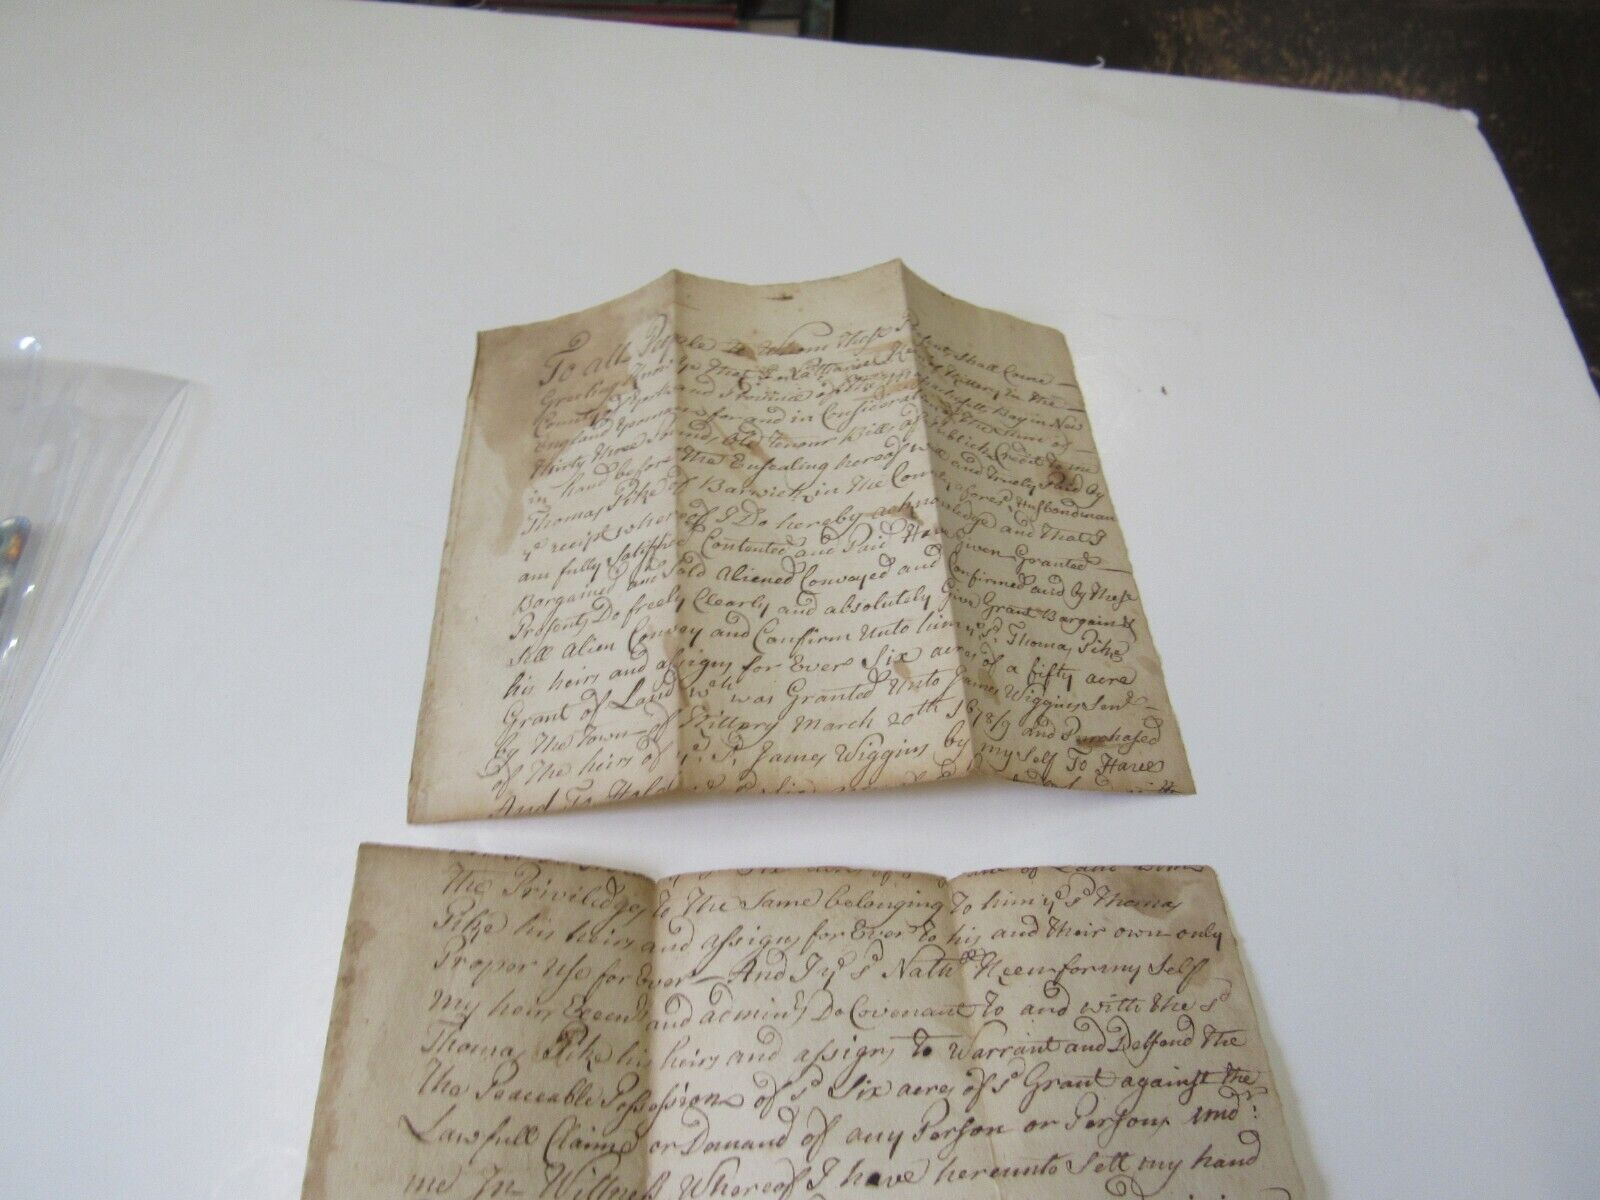 To all People to whom These Presents Shall Come —
Greeting Know ye That I Nathaniel Keen of Kittery in the —
County of York and Province of the Massachusetts Bay in New
England Yeoman for and in Consideration of The Sum of —
Thirty three Pounds Old Tenour Bills of Publick Credit to me
in hand before The Ensealing hereof Well and Truely Paid by
Thomas Pike of Barwick in The County afores.d Husbandman
ye receipt whereof I Do hereby acknowledge and That I
am fully Satisfied Contented and Paid Have Given Granted —
Bargained and Sold Aliened Conveyed and Confirmed and by These
Presents Do freely Clearly and absolutely Give Grant Bargain &
Sell Alien Convey and Confirm Unto him ye sd. Thomas Pike
his heirs and assigns for Ever Six acres of a fifty acre
Grant of Land wch was Granted Unto James Wiggins Senr —
by The Town of Kittery March 20th 1678/9 and Purchased
of The heirs of ye sd. James Wiggins by my Self To Have
And To Hold ye sd Six acres
Six acres of Land With
The Priviledges to The Same belonging To him ye sd Thomas
Pike his heirs and assigns for Ever to his and their own only
Proper Use for Ever — And I ye sd Nathll Keen for my Self
my heirs Execrs and adminrs Do Covenant to and with the sd
Thomas Pike his heirs and assigns to Warrant and Deffend The
The Peaceable Possession of sd Six acres of sd Grant against The
Lawfull Claims or Demand of any Person or Persons undr:
me In Witness Whereof I have hereunto Sett my hand